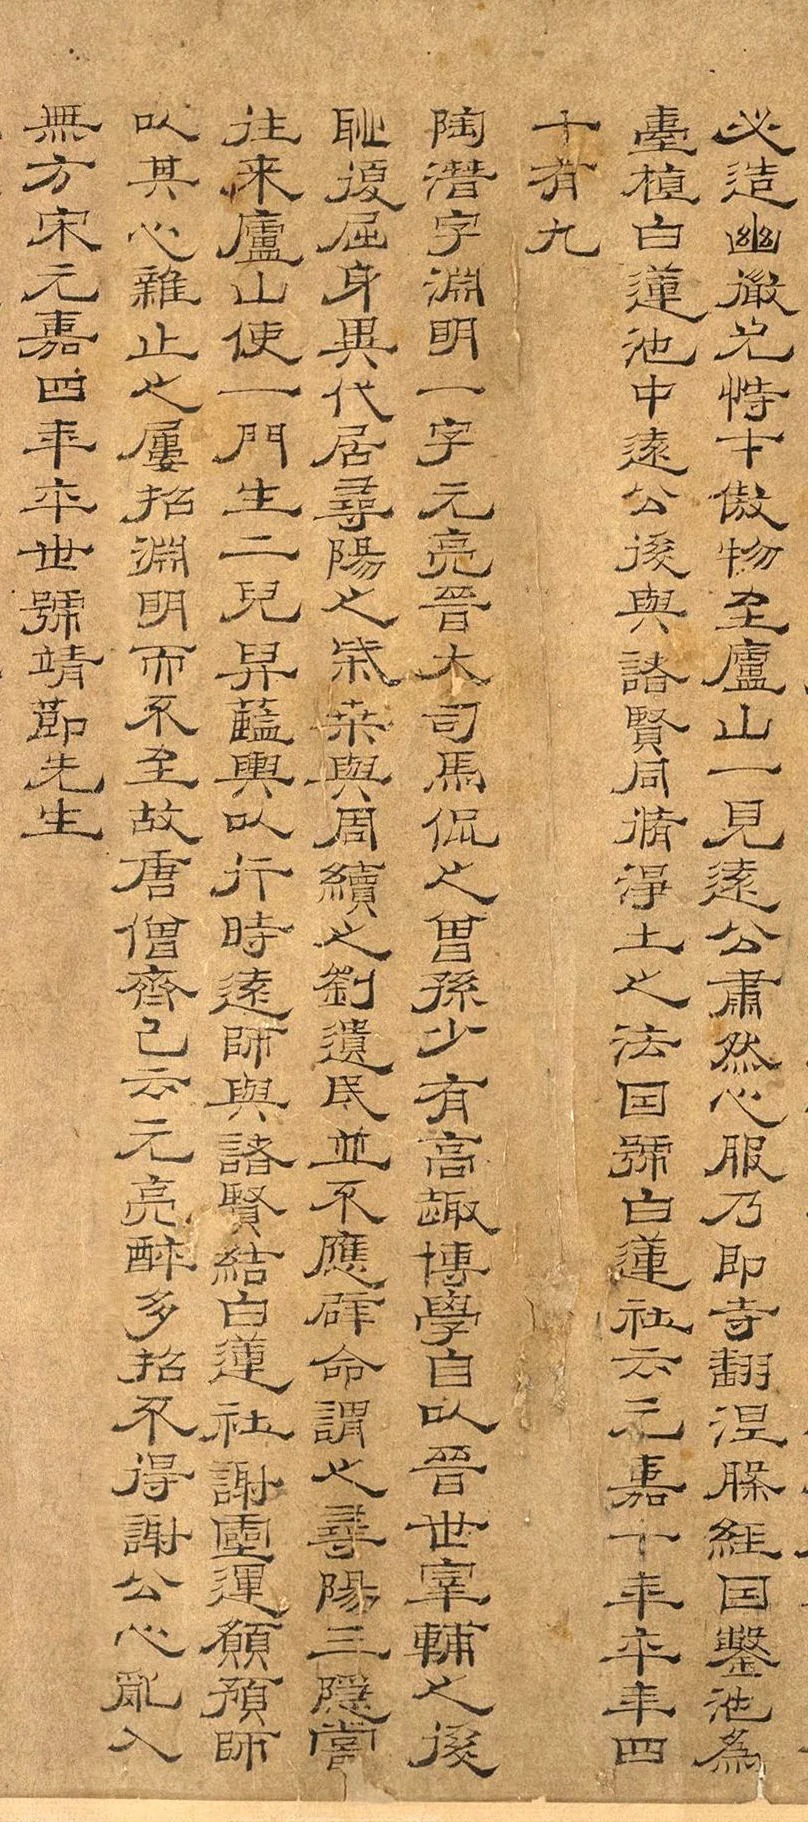 必造幽徹尤恃才傲物至廬山一見遠公肅然心服乃即寺翻涅槃經因鑿池為
臺植白蓮池中遠公後與諸賢同脩淨土之法因號白蓮社云元嘉十年卒年四
十有九
陶潛字淵明一字元亮晉大司馬侃之曾孫少有高趣博學自以晉世宰輔之後
恥復屈身異代居尋陽之柴桑與周續之劉遺民並不應辟命謂之尋陽三隱嘗
往来廬山使一門生二兒舁藍輿以行時遠師與諸賢結白蓮社謝靈運願預師
以其心雜止之屢招淵明而不至故唐僧齊己云元亮醉多招不得謝公心亂入
無方宋元嘉四年卒世號靖節先生